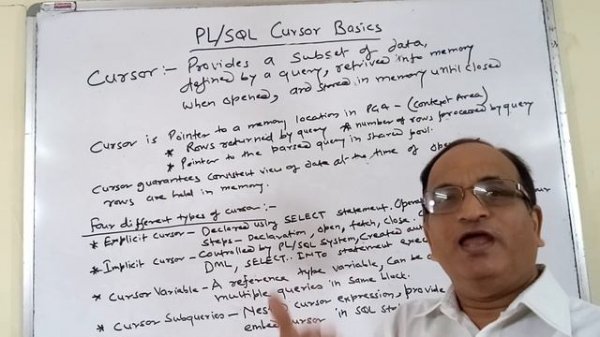 PL/SQL Cursor Basics
Cursor:- Provides a subset of data,
defined by a query, retrived into memory
when opened, and stored in memory until closed
Cursor is Pointer to a memory location in PGA - (Context Area)
* Rows returned by query * number of rows processed by query
* Pointer to the parsed query in shared pool.
Cursor guarantees consistent view of data at the time of
rows are held in memory.
Four different types of cursor:-
* Explicit cursor - Declared using SELECT statement.
steps - Declaration, open, fetch, close.
* Implicit cursor - Controlled by PL/SQL System, Created
DML, SELECT.. INTO statement
* Cursor Variable - A reference type variable, Can be
multiple queries in same block.
* Cursor Subqueries - cursor expression, provide
cursor in SQL